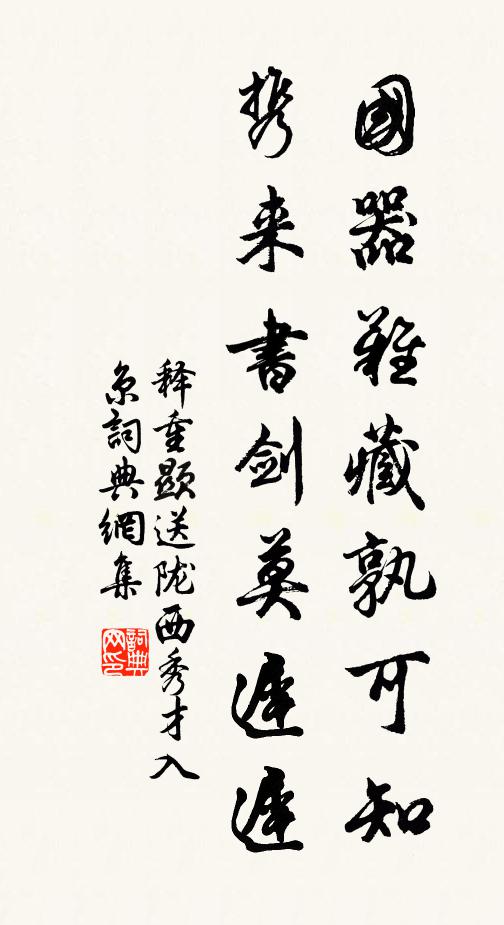 國器難藏孰可知
携来書剑莫遲遲
释重顯送陇西秀才入
京詞典網集
詞典网印